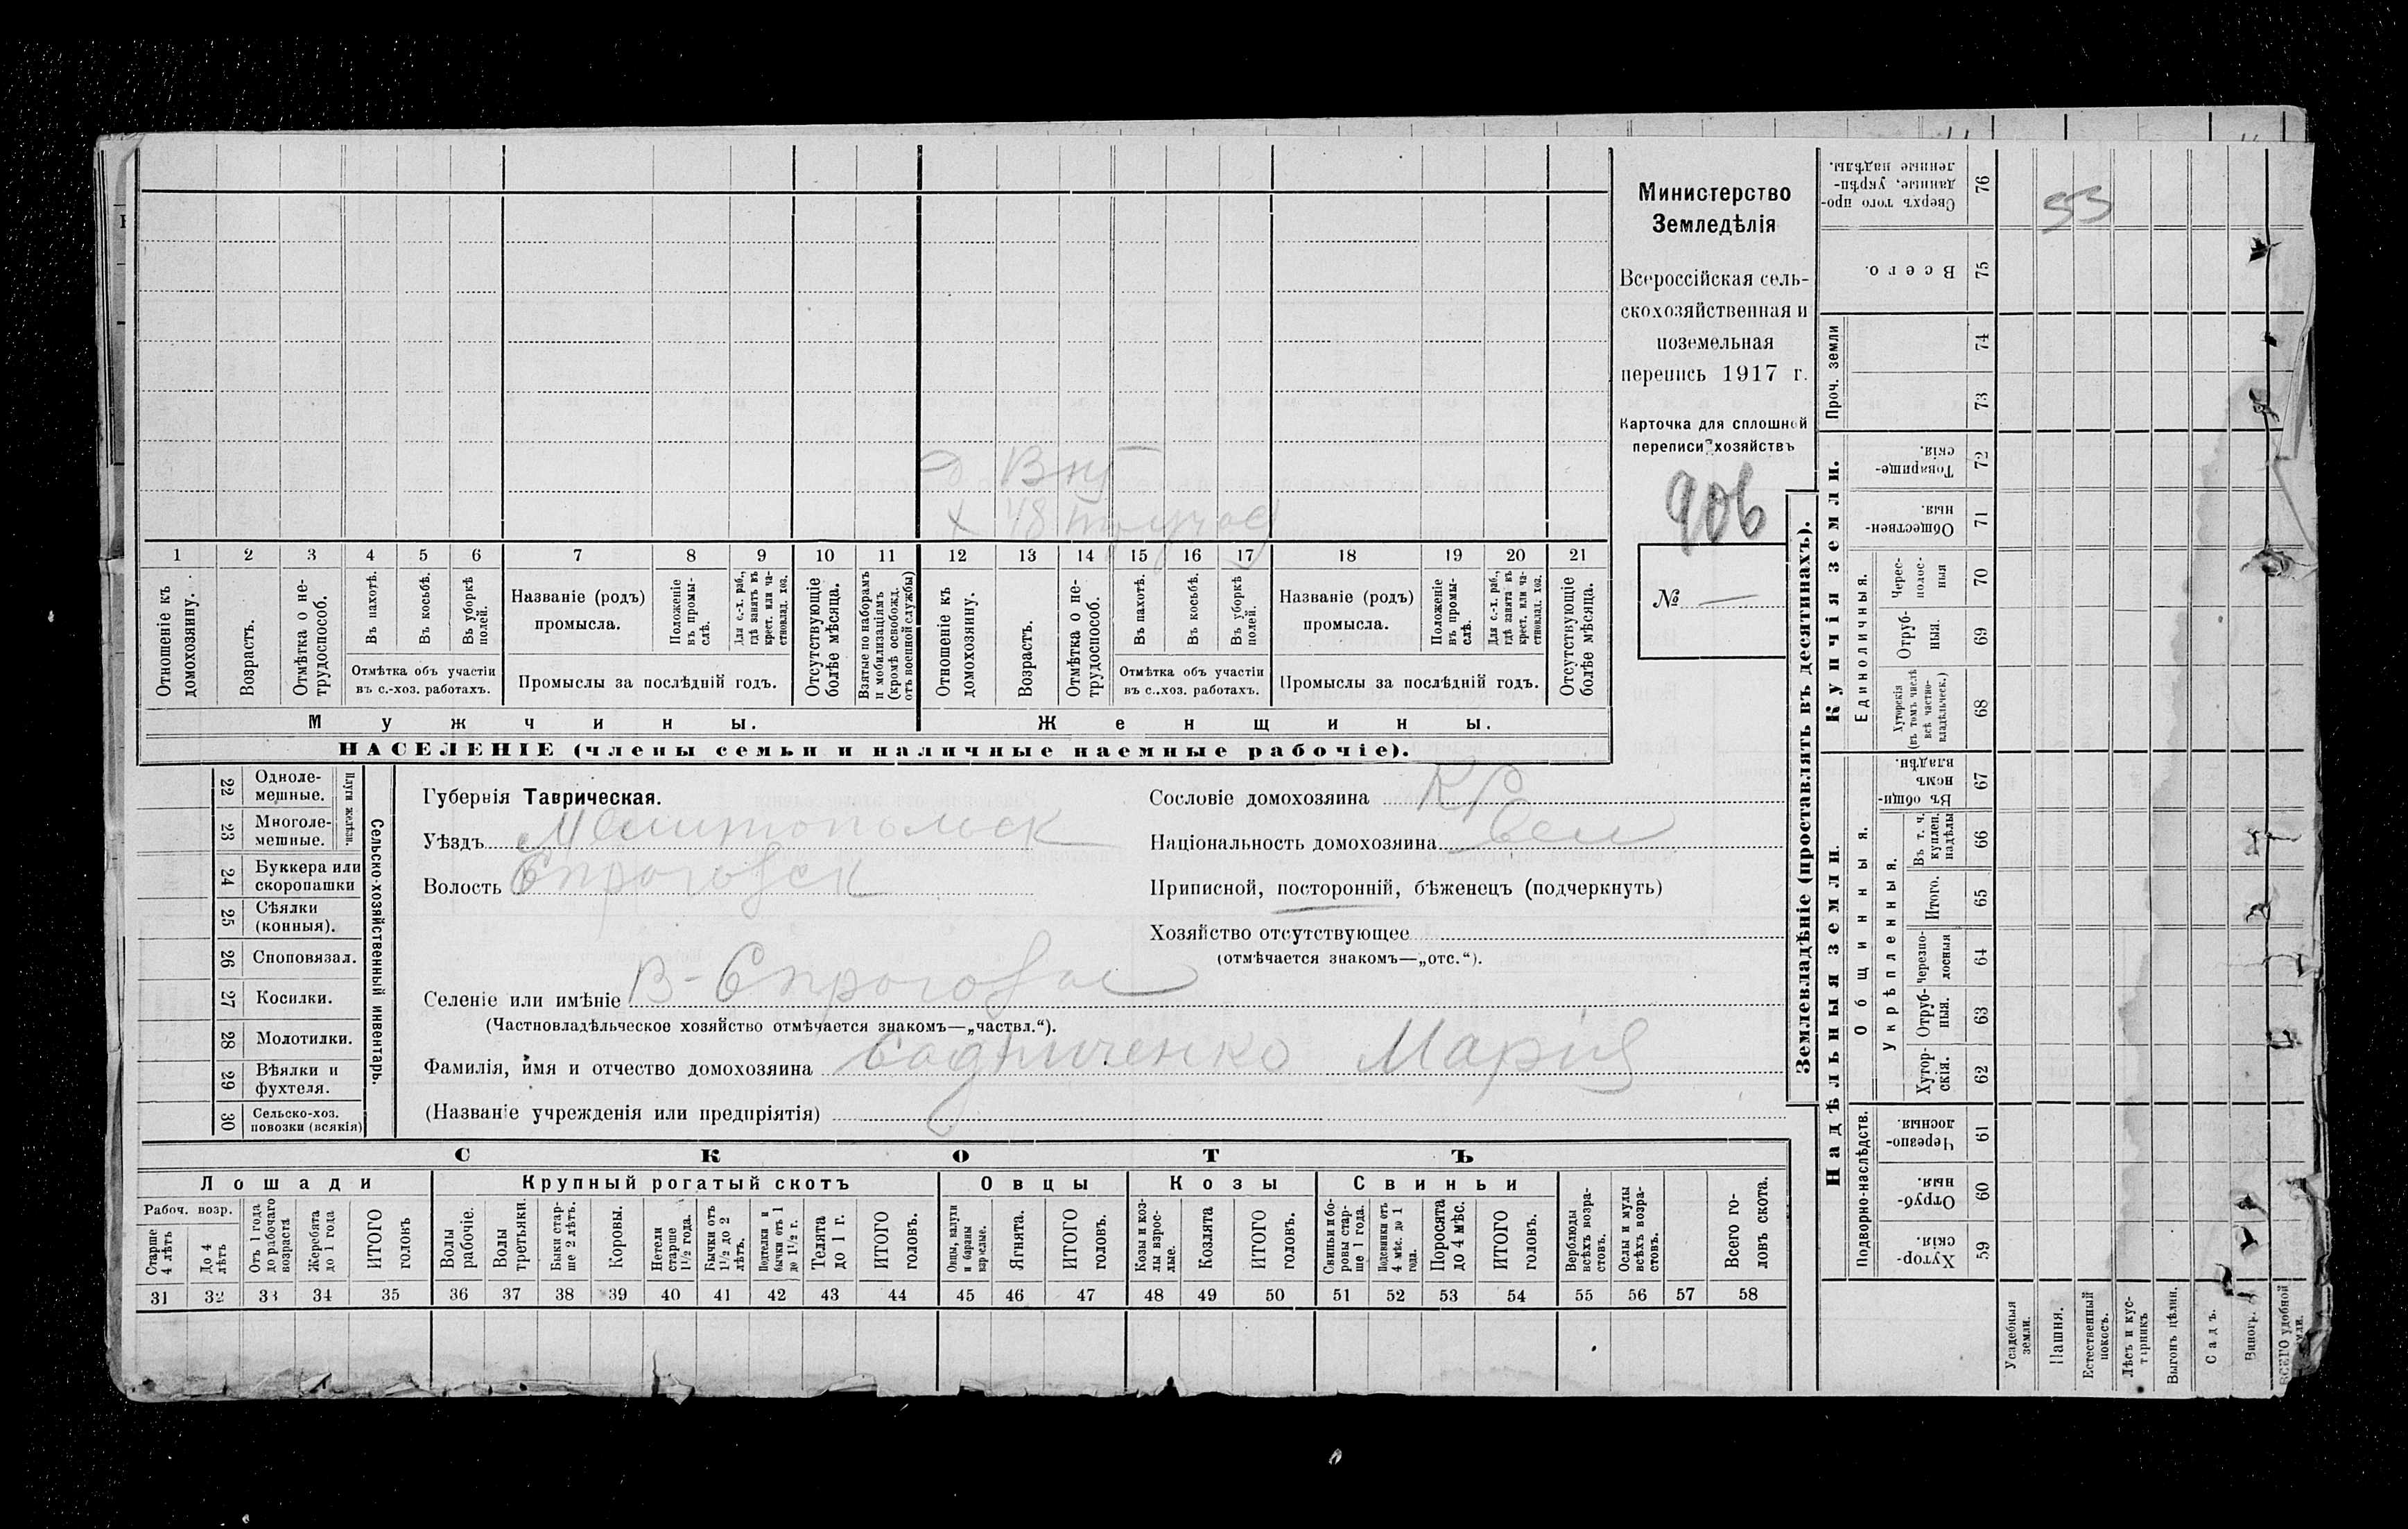 Министерство
Земледѣлія
Всероссійская сель-
скохозяйственная и
поземельная
перепись 1917 г.
Карточка для сплошной
переписи хозяйствъ
906
№ —
1 2 3 4 5 6 7 8 9 10 11 12 13 14 15 16 17 18 19 20 21
Отношеніе къ домохозяину.
Возрастъ.
Отмѣтка о не-трудоспособ.
Въ пахотѣ.
Въ косьбѣ.
Въ уборкѣ полей.
Отмѣтка объ участіи
въ с.-хоз. работахъ.
Названіе (родъ)
промысла.
Положеніе въ промы-слѣ.
Для с.-х. раб., гдѣ занятъ въ крест. или ча-стновлад. хоз.
Промыслы за послѣдній годъ.
Отсутствующіе болѣе мѣсяца.
Взятые по наборамъ и мобилизаціямъ (кромѣ освобожд. отъ военной службы)
Отношеніе къ домохозяину.
Возрастъ.
Отмѣтка о не-трудоспособ.
Въ пахотѣ.
Въ косьбѣ.
Въ уборкѣ полей.
Отмѣтка объ участіи
въ с..хоз. работахъ.
Названіе (родъ)
промысла.
Положеніе въ промы-слѣ.
Для с.-х. раб., гдѣ занята въ крест. или ча-стновлад. хоз.
Промыслы за послѣдній годъ.
Отсутствующіе болѣе мѣсяца.
Мужчины.
Женщины.
НАСЕЛЕНІЕ (члены семьи и наличные наемные рабочіе).
22 Одноле-мешные.
23 Многоле-мешные.
Плуги желѣзн.
24 Буккера или скоропашки
25 Сѣялки (конныя).
26 Споповязал.
27 Косилки.
28 Молотилки.
29 Вѣялки и фухтеля.
30 Сельско-хоз. повозки (всякія)
Сельско-хозяйственный инвентарь.
Губернія Таврическая.
Уѣздъ Мелитопольск
Волость
Селеніе или имѣніе
(Частновладѣльческое хозяйство отмѣчается знакомъ—„частвл.“).
Фамилія, имя и отчество домохозяина Марія
(Названіе учрежденія или предпріятія)
Сословіе домохозяина Кр
Національность домохозяина
Приписной, посторонній, бѣженецъ (подчеркнуть)
Хозяйство отсутствующее
(отмѣчается знакомъ—„отс.“).
СКОТЪ
Лошади
Крупный рогатый скотъ
Овцы
Козы
Свиньи
Рабоч. возр.
Старше 4 лѣтъ
До 4 лѣтъ
Отъ 1 года до рабочаго возраста
Жеребята до 1 года
ИТОГО головъ
Волы рабочіе.
Волы третьяки.
Быки стар-ше 2 лѣтъ.
Коровы.
Нетели старше 1½ года.
Бычки отъ 1½ до 2 лѣтъ.
Подтелки и бычки отъ 1 до 1½ г.
Телята до 1 г.
ИТОГО головъ.
Овцы, валухи и бараны взрослые.
Ягнята.
ИТОГО головъ.
Козы и коз-лы взрос-лые.
Козлята
ИТОГО головъ.
Свиньи и бо-ровы стар-ше 1 года.
Подсвинки отъ 4 мѣс. до 1 года.
Поросята до 4 мѣс.
ИТОГО головъ.
Верблюды всѣхъ возра-стовъ.
Ослы и мулы всѣхъ возра-стовъ.
Всего го-ловъ скота.
31 32 33 34 35 36 37 38 39 40 41 42 43 44 45 46 47 48 49 50 51 52 53 54 55 56 57 58
Землевладѣніе (проставлять въ десятинахъ).
Сверхъ того про-данные, укрѣп-ленные надѣлы. 76
53
Всего. 75
Проч. земли
74
73
Купчія земли.
Товарище-скія. 72
Обществен-ныя. 71
Единоличныя.
Черес-полос-ныя 70
Отруб-ныя. 69
Хуторскія (въ томъ числѣ всѣ частно-владѣльческ.) 68
Надѣльныя земли.
Общинныя.
Въ общи-номъ владѣн. 67
Укрѣпленныя.
Въ т. ч. куплен. надѣлы 66
Итого. 65
Черезпо-лосныя 64
Отруб-ныя. 63
Хутор-скія. 62
Подворно-наслѣдств.
Черезпо-лосныя. 61
Отруб-ныя. 60
Хутор-скія. 59
Усадебныя земли.
Пашня.
Естественный покосъ.
Лѣсъ и кус-тарникъ
Выгонъ цѣлин.
Садъ.
Виногр.
ВСЕГО удобной